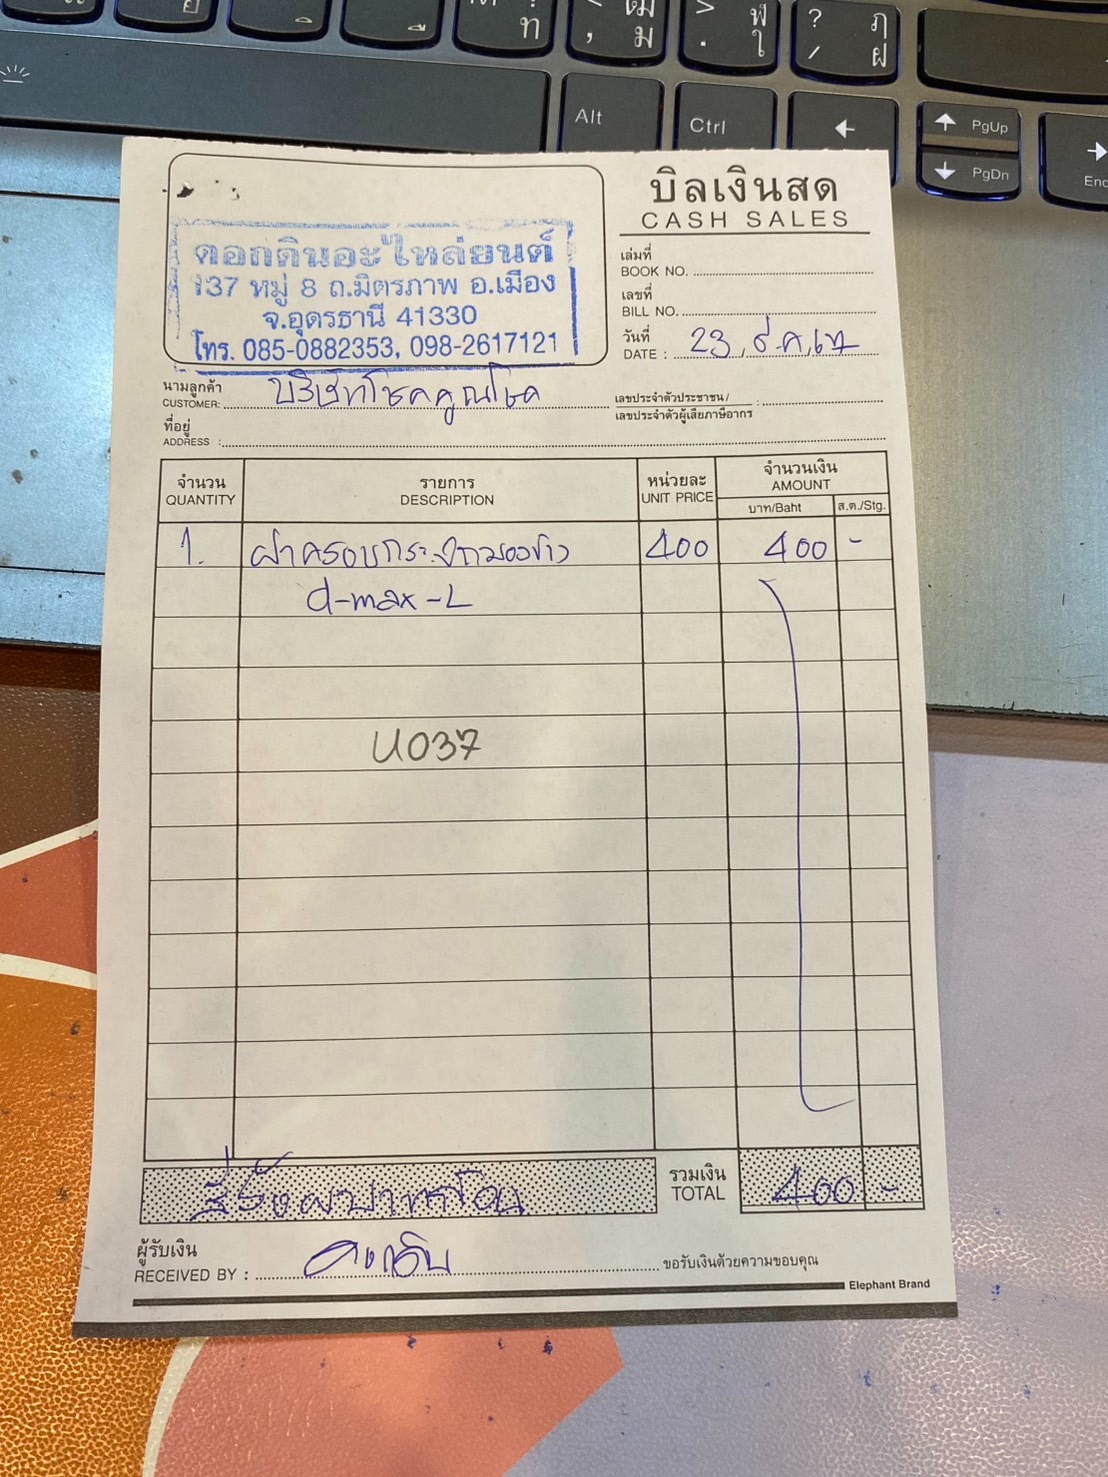 ? ฦ
/ ฝ
Alt
Ctrl
PgUp
PgDn
End
บิลเงินสด
CASH SALES
ดอกดินอะไหล่ยนต์
137 หมู่ 8 ถ.มิตรภาพ อ.เมือง
จ.อุดรธานี 41330
โทร. 085-0882353, 098-2617121
เล่มที่
BOOK NO.
เลขที่
BILL NO.
วันที่
DATE : 23, ธ.ค, 67
นามลูกค้า
CUSTOMER: บริษัทโชคคูณโชค
เลขประจำตัวประชาชน /
เลขประจำตัวผู้เสียภาษีอากร :
ที่อยู่
ADDRESS :
จำนวน
QUANTITY
รายการ
DESCRIPTION
หน่วยละ
UNIT PRICE
จำนวนเงิน
AMOUNT
บาท/Baht
ส.ต./Stg.
1. ฝาครอบกระจกมองข้าง 400 400 -
d-max-L
U037
สี่ร้อยบาทถ้วน
รวมเงิน
TOTAL 400 -
ผู้รับเงิน
RECEIVED BY :
ขอรับเงินด้วยความขอบคุณ
Elephant Brand